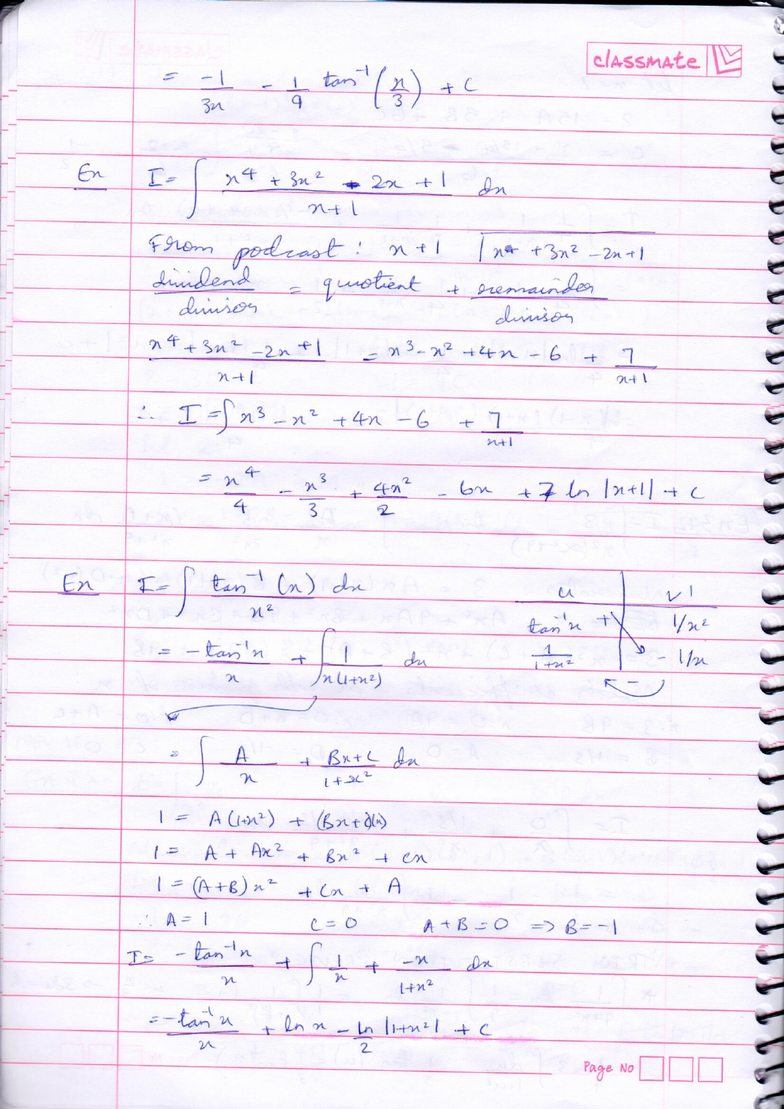 classmate
= -1/3x - 1/9 tan⁻¹(x/3) + C
Ex I = ∫ x⁴ + 3x² - 2x + 1 / x+1 dx
From podcast : x + 1 | x⁴ + 3x² - 2x + 1
dividend/divisor = quotient + remainder/divisor
x⁴ + 3x² - 2x + 1 / x+1 = x³ - x² + 4x - 6 + 7/x+1
∴ I = ∫ x³ - x² + 4x - 6 + 7/x+1
= x⁴/4 - x³/3 + 4x²/2 - 6x + 7 ln |x+1| + C
Ex I = ∫ tan⁻¹(x)/x² dx
u | v'
tan⁻¹x + 1/x²
1/1+x² - 1/x
-
= -tan⁻¹x/x + ∫ 1/x(1+x²) dx
= ∫ A/x + Bx+C/1+x² dx
1 = A(1+x²) + (Bx+C)(x)
1 = A + Ax² + Bx² + Cx
1 = (A+B)x² + Cx + A
∴ A = 1 C = 0 A + B = 0 => B = -1
I = -tan⁻¹x/x + ∫ 1/x + -x/1+x² dx
= -tan⁻¹x/x + ln x - ln |1+x²|/2 + C
Page No